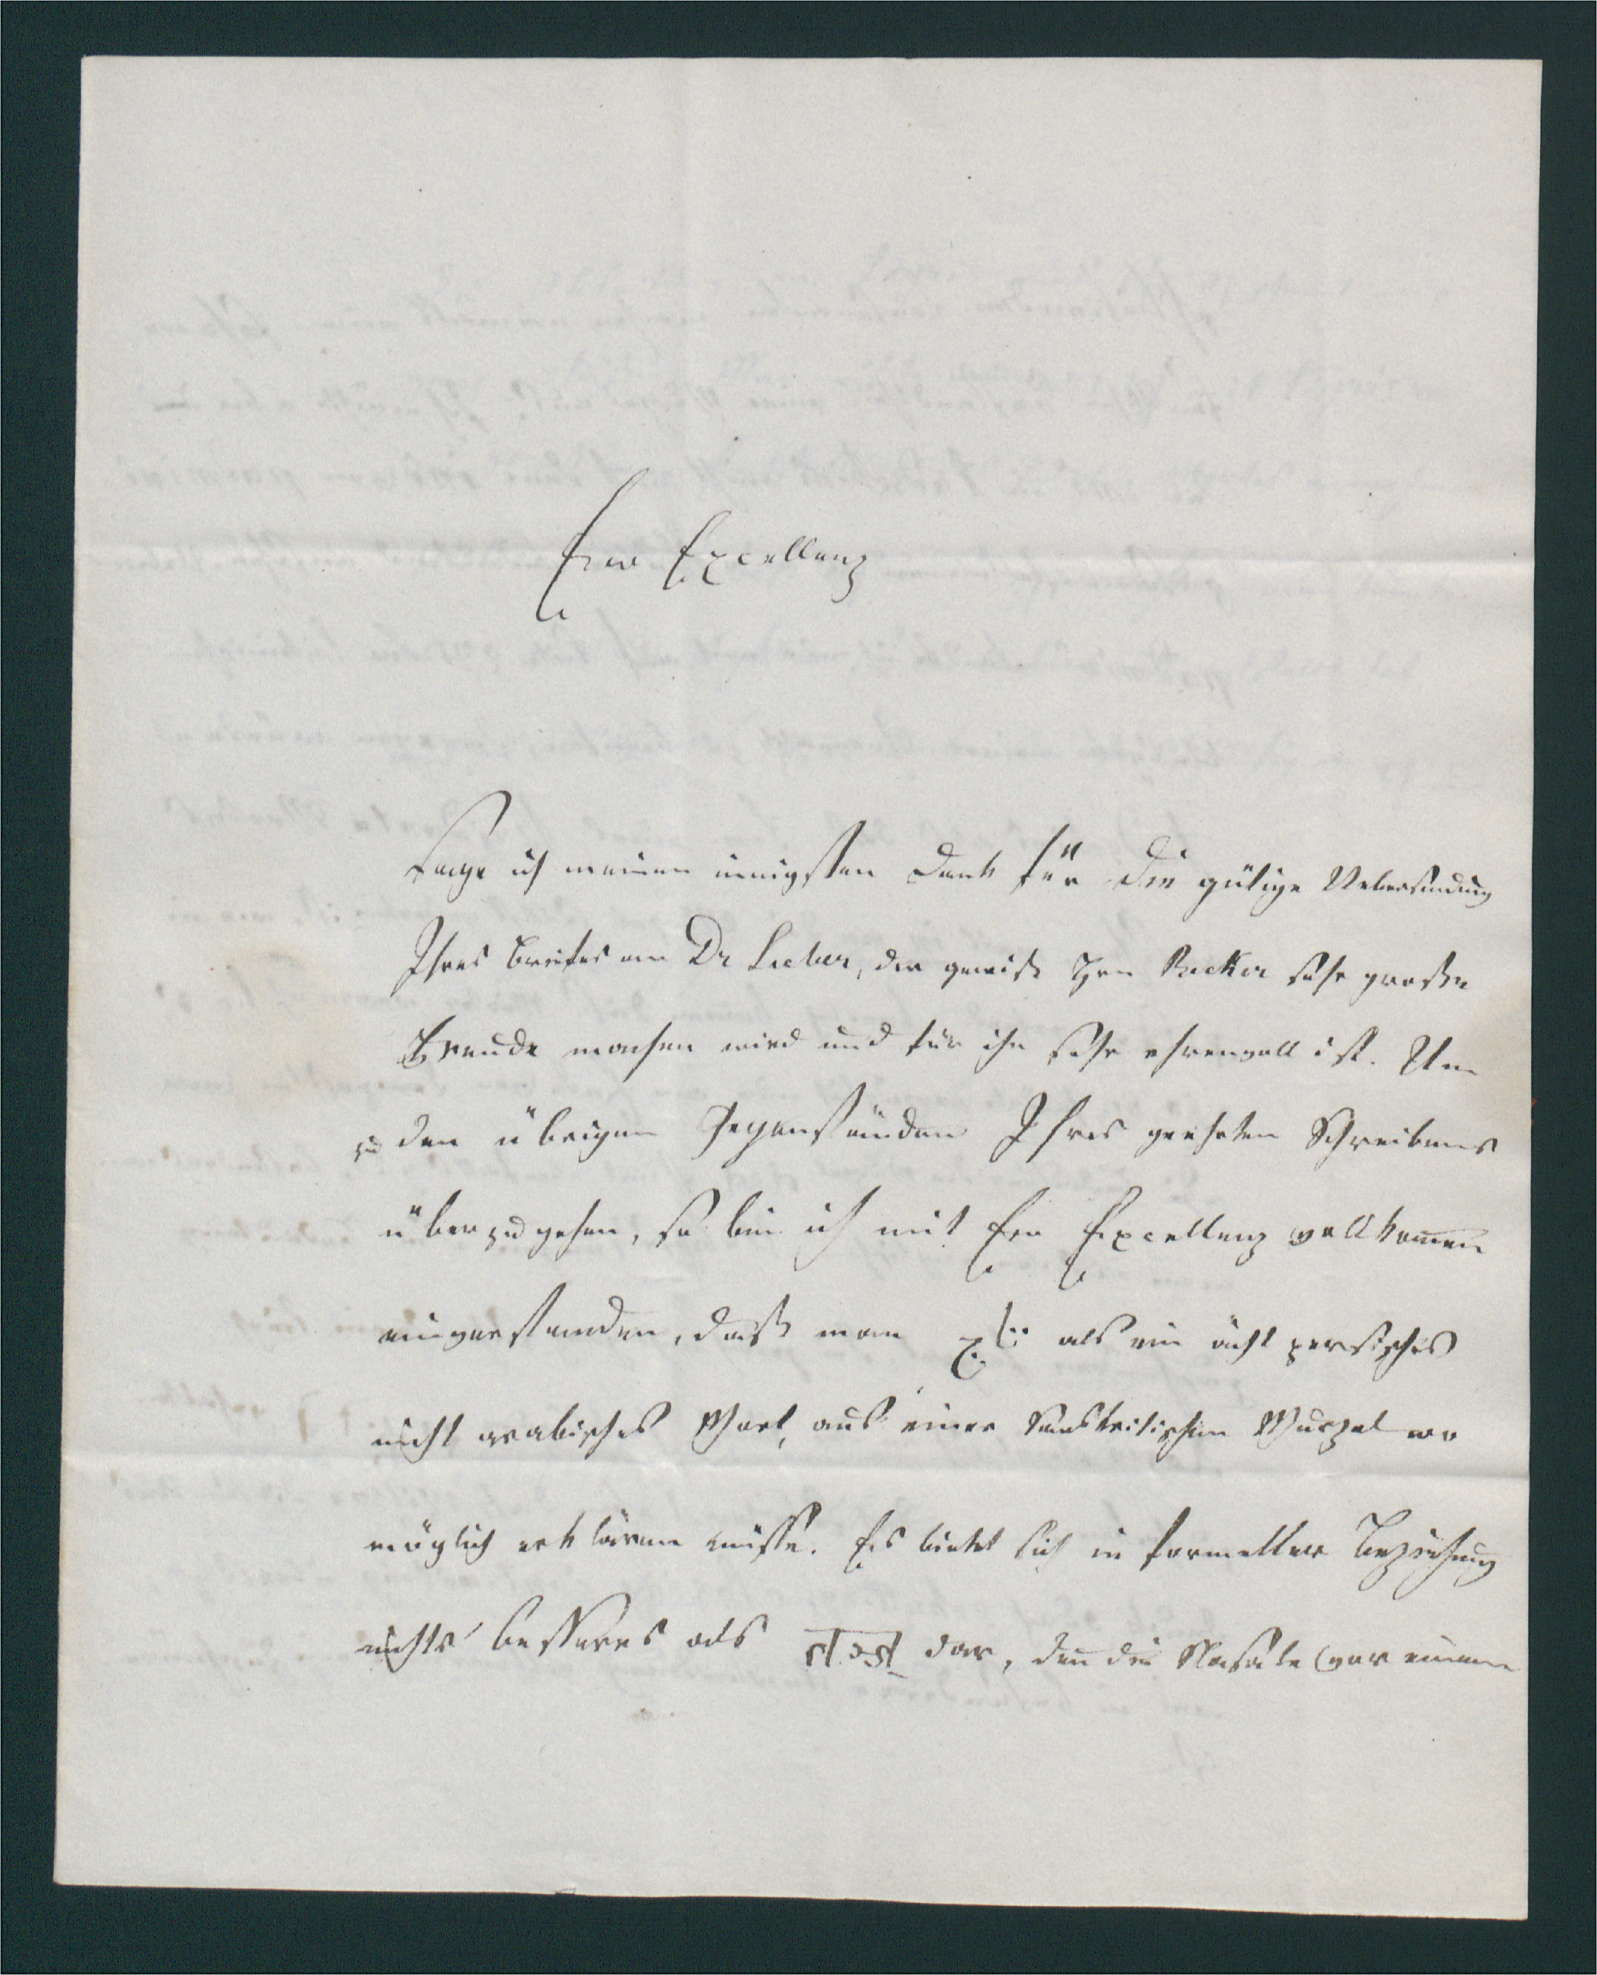 Ew Excellenz
sage ich meinen innigsten Dank für die gütige Uebersendung
Ihres Briefes an Dr Lieber, der gewiß Hrn Becker sehr große
Freude machen wird und für ihn sehr ehrenvoll ist. Um
zu den übrigen Gegenständen Ihres geehrten Schreibens
überzugehen, so bin ich mit Ew Excellenz vollkommen
einverstanden, daß man als ein ächt persisches
nicht arabisches Wort, aus einer Sanskritischen Wurzel wo
möglich erklären müsse. Es bietet sich in formeller Beziehung
nichts besseres als dar, denn die Nasale (vor einem